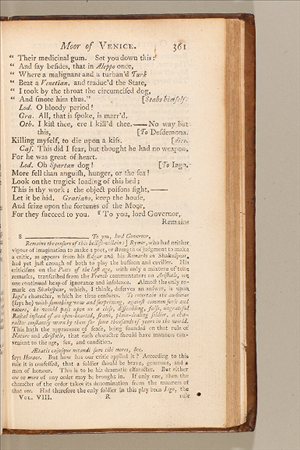 Moor of VENICE. 361
" Their medicinal gum. Set you down this:
" And say besides, that in Aleppo once,
" Where a malignant and a turban'd Turk
" Beat a Venetian, and traduc'd the State,
" I took by the throat the circumcised dog,
" And smote him thus." [Stabs himself.
Lod. O bloody period!
Gra. All, that is spoke, is marr'd.
Oth. I kist thee, ere I kill'd thee.—No way but
this, [To Desdemona.
Killing myself, to die upon a kiss. [dies.
Cas. This did I fear, but thought he had no weapon,
For he was great of heart.
Lod. Oh Spartan dog! [To Iago.
More fell than anguish, hunger, or the sea!
Look on the tragick loading of this bed;
This is thy work; the object poisons sight,——
Let it be hid. Gratiano, keep the house,
And seize upon the fortunes of the Moor,
For they succeed to you. 8 To you, lord Governor,
Remains
8 —— To you, lord Governor,
Remains the censure of this hellish villain;] Rymer, who had neither
vigour of imagination to make a poet, or strength of judgment to make
a critic, as appears from his Edgar and his Remarks on Shakespear,
had yet just enough of both to play the buffoon and caviller. His
criticisms on the Poets of the last age, with only a mixture of trite
remarks, transcribed from the French commentators on Aristotle, are
one continued heap of ignorance and insolence. Almost the only re-
mark on Shakespear, which, I think, deserves an answer, is upon
Iago's character, which he thus censures. To entertain the audience
(says he) with something new and surprising, against common sense and
nature, he would pass upon us a close, dissembling, false, ungrateful
Rascal instead of an open-hearted, frank, plain-dealing Soldier, a cha-
racter constantly worn by them for some thousands of years in the world.
This hath the appearance of sense, being founded on that rule of
Horace and Aristotle, that each character should have manners con-
venient to the age, sex, and condition.
Ætatis cujusque notandi sunt tibi mores, &c.
says Horace. But how has our critic applied it? According to this
rule it is confessed, that a soldier should be brave, generous, and a
man of honour. This is to be his dramatic character. But either
one or more of any order may be brought in. If only one, then the
character of the order takes its denomination from the manners of
that one. Had therefore the only soldier in this play been Iago, the
VOL. VIII. R rule